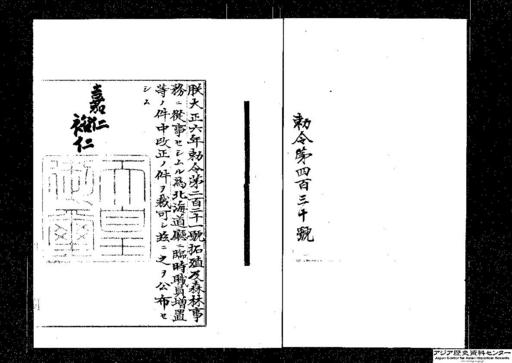 勅令第四百三十號
朕大正六年勅令第二百二十一號拓殖及森林事
務ニ從事セシムル為北海道廳ニ臨時職員增置
等ノ件中改正ノ件ヲ裁可シ茲ニ之ヲ公布セ
シム
嘉仁
裕仁
天皇
御璽
アジア歴史資料センター
Japan Center for Asian Historical Records